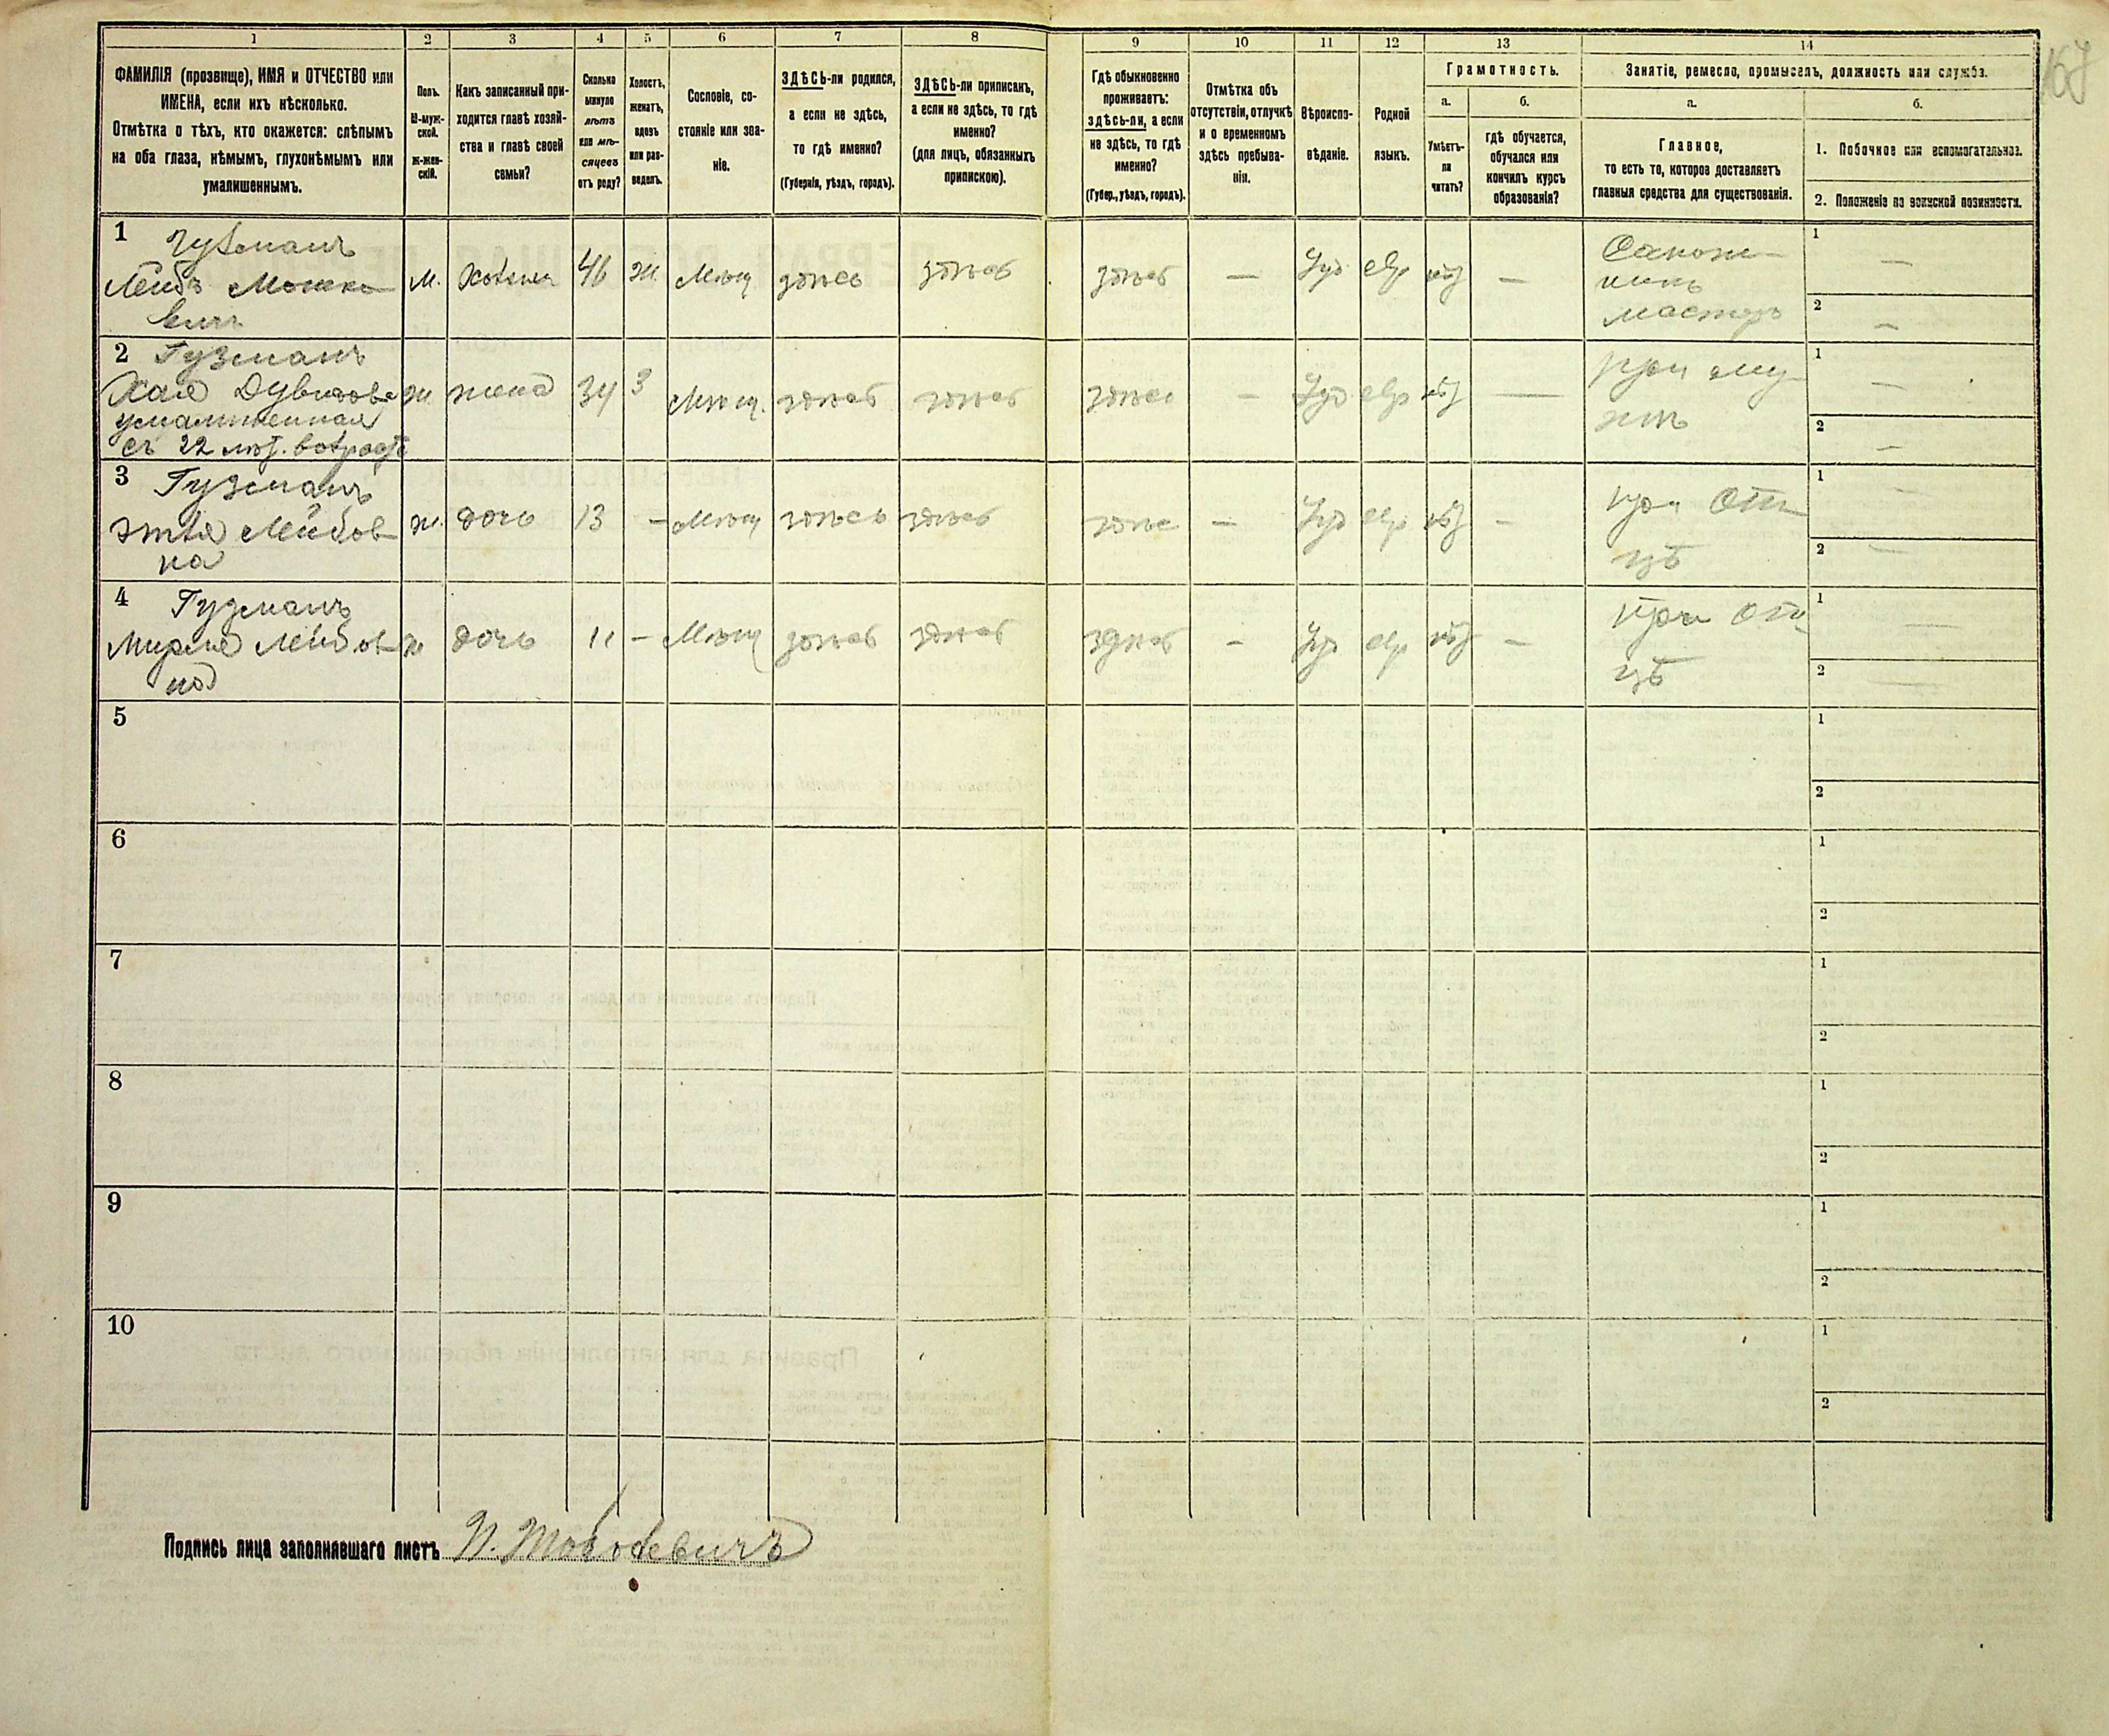 167
1 2 3 4 5 6 7 8 9 10 11 12 13 14
ФАМИЛІЯ (прозвище), ИМЯ и ОТЧЕСТВО или
ИМЕНА, если ихъ нѣсколько.
Отмѣтка о тѣхъ, кто окажется: слѣпымъ
на оба глаза, нѣмымъ, глухонѣмымъ или
умалишеннымъ.
Полъ.
М-муж-
ской.
Ж-жен-
скій.
Какъ записанный при-
ходится главѣ хозяй-
ства и главѣ своей
семьи?
Сколько
минуло
лѣтъ
или мѣ-
сяцевъ
отъ роду?
Холостъ,
женатъ,
вдовъ
или раз-
веденъ.
Сословіе, со-
стояніе или зва-
ніе.
ЗДѢСЬ-ли родился,
а если не здѣсь,
то гдѣ именно?
(Губернія, уѣздъ, городъ).
ЗДѢСЬ-ли приписанъ,
а если не здѣсь, то гдѣ
именно?
(для лицъ, обязанныхъ
припискою).
Гдѣ обыкновенно
проживаетъ:
здѣсь-ли, а если
не здѣсь, то гдѣ
именно?
(Губер., уѣздъ, городъ).
Отмѣтка объ
отсутствіи, отлучкѣ
и о временномъ
здѣсь пребыва-
ніи.
Вѣроиспо-
вѣданіе.
Родной
языкъ.
Грамотность.
а.
Умѣетъ-
ли
читать?
б.
гдѣ обучается,
обучался или
кончилъ курсъ
образованія?
Занятіе, ремесло, промыселъ, должность или служба.
а.
Главное,
то есть то, которое доставляетъ
главныя средства для существованія.
б.
1. Побочное или вспомогательное.
2. Положеніе по воинской повинности.
1 Гузманъ
Лейбъ Мошко-
вичъ
м. хозяинъ 46 ж. Мѣщ здѣсь здѣсь здѣсь — Іуд евр нѣт —
Сапож-
никъ
мастеръ
1 —
2 —
2 Гузманъ
Хая Дувидова
умалишенная
съ 22 лѣт. возраста
ж. жена 34 З Мѣщ. здѣсь здѣсь здѣсь — Іуд евр нѣт —
при му-
жѣ
1 —
2 —
3 Гузманъ
Этля Лейбов-
на
ж. дочь 13 — Мѣщ здѣсь здѣсь здѣсь — Іуд евр нѣт —
при От-
цѣ
1 —
2 —
4 Гузманъ
Мирля Лейбов-
на
ж дочь 11 — Мѣщ здѣсь здѣсь здѣсь — Іуд евр нѣт —
при От-
цѣ
1 —
2 —
5 1
2
6 1
2
7 1
2
8 1
2
9 1
2
10 1
2
Подпись лица заполнявшаго листъ